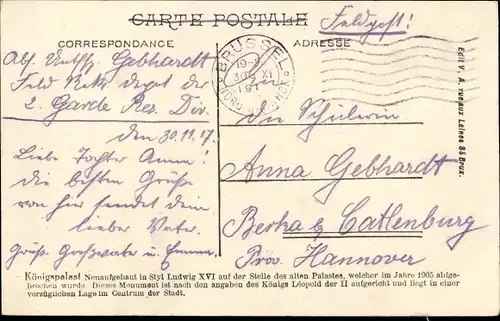 CARTE POSTALE
Feldpost!
CORRESPONDANCE
ADRESSE
BRUSSEL
Abs. Untffz. Gebhardt
Feld Rekr. depot der
2. Garde Res. Div.
den 30.11.17.
Liebe Tochter Anna!
die besten Grüße
von hier sendet dein
lieber Vater.
Grüß. Großvater u. Emma.
An
die Schülerin
Anna Gebhardt
Berka b. Catlenburg
Prov. Hannover
Edit V. A. rue aux Laines 85 Brux.
Königspalest Neuaufgebaut in Styl Ludwig XVI auf der Stelle des alten Palastes, welcher im Jahre 1905 abge-
brochen wurde. Dieses Monument ist nach den angaben des Königs Léopold der II aufgericht und liegt in einer
vorzüglichen Lage im Centrum der Stadt.